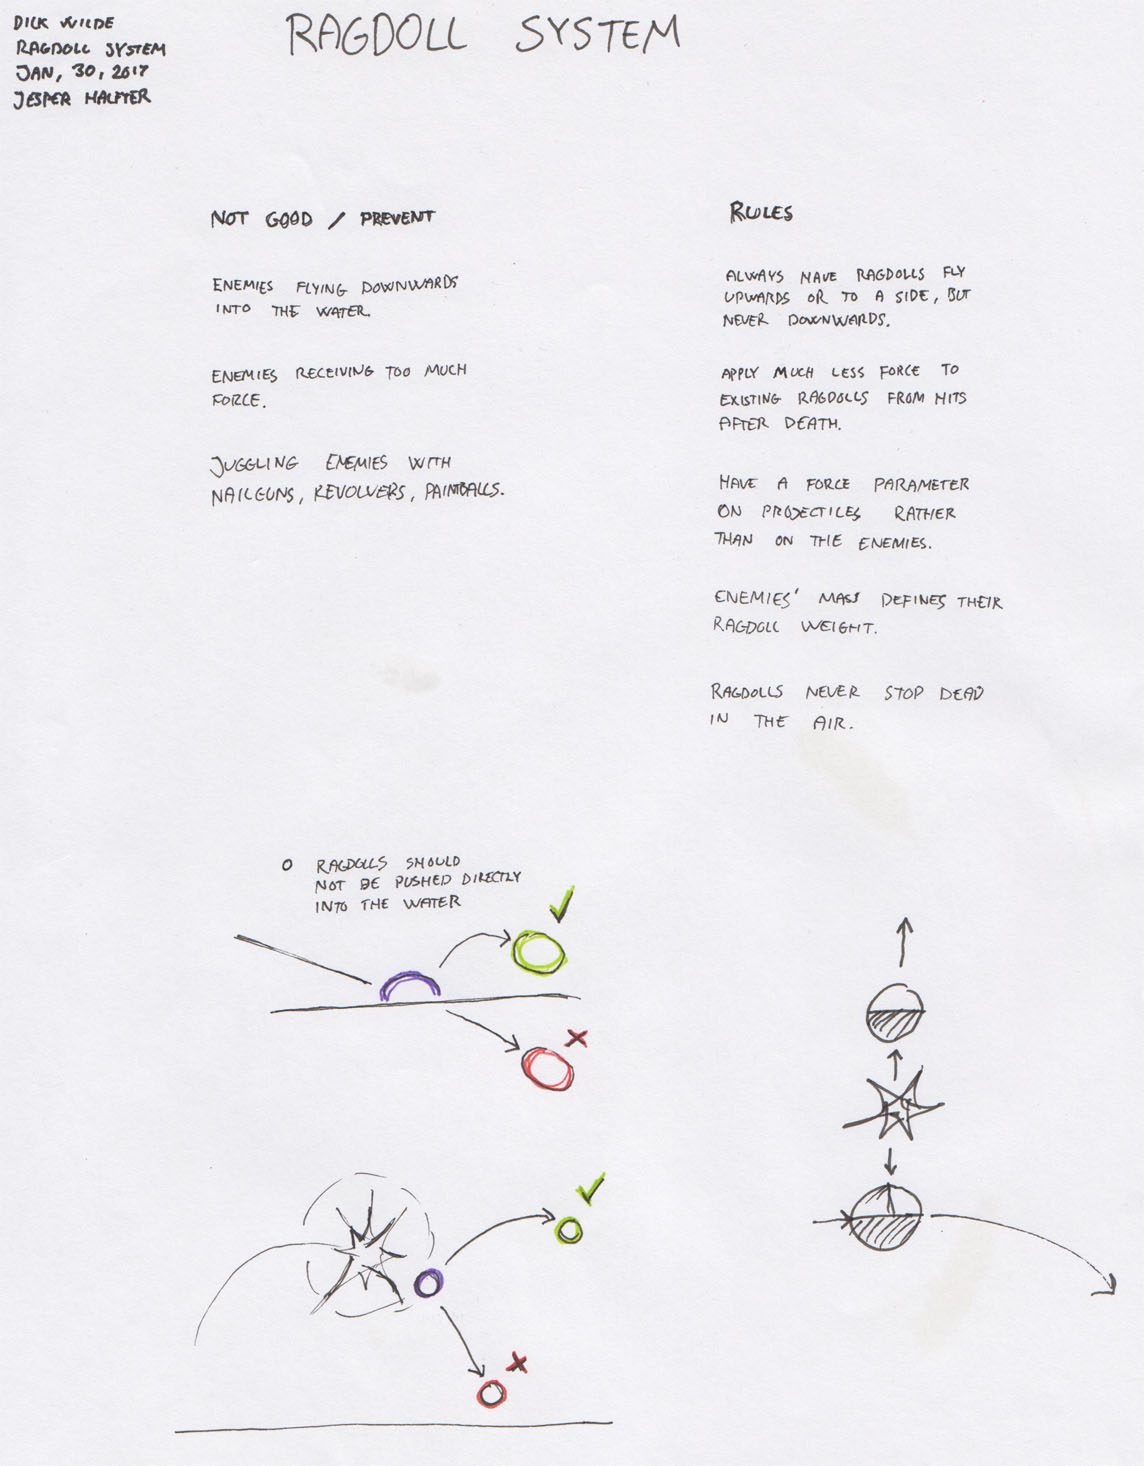 DICK WILDE
RAGDOLL SYSTEM
JAN, 30, 2017
JESPER HALFTER
RAGDOLL SYSTEM
NOT GOOD / PREVENT
ENEMIES FLYING DOWNWARDS
INTO THE WATER.
ENEMIES RECEIVING TOO MUCH
FORCE.
JUGGLING ENEMIES WITH
NAILGUNS, REVOLVERS, PAINTBALLS.
RULES
ALWAYS HAVE RAGDOLLS FLY
UPWARDS OR TO A SIDE, BUT
NEVER DOWNWARDS.
APPLY MUCH LESS FORCE TO
EXISTING RAGDOLLS FROM HITS
AFTER DEATH.
HAVE A FORCE PARAMETER
ON PROJECTILES RATHER
THAN ON THE ENEMIES.
ENEMIES' MASS DEFINES THEIR
RAGDOLL WEIGHT.
RAGDOLLS NEVER STOP DEAD
IN THE AIR.
O RAGDOLLS SHOULD
NOT BE PUSHED DIRECTLY
INTO THE WATER